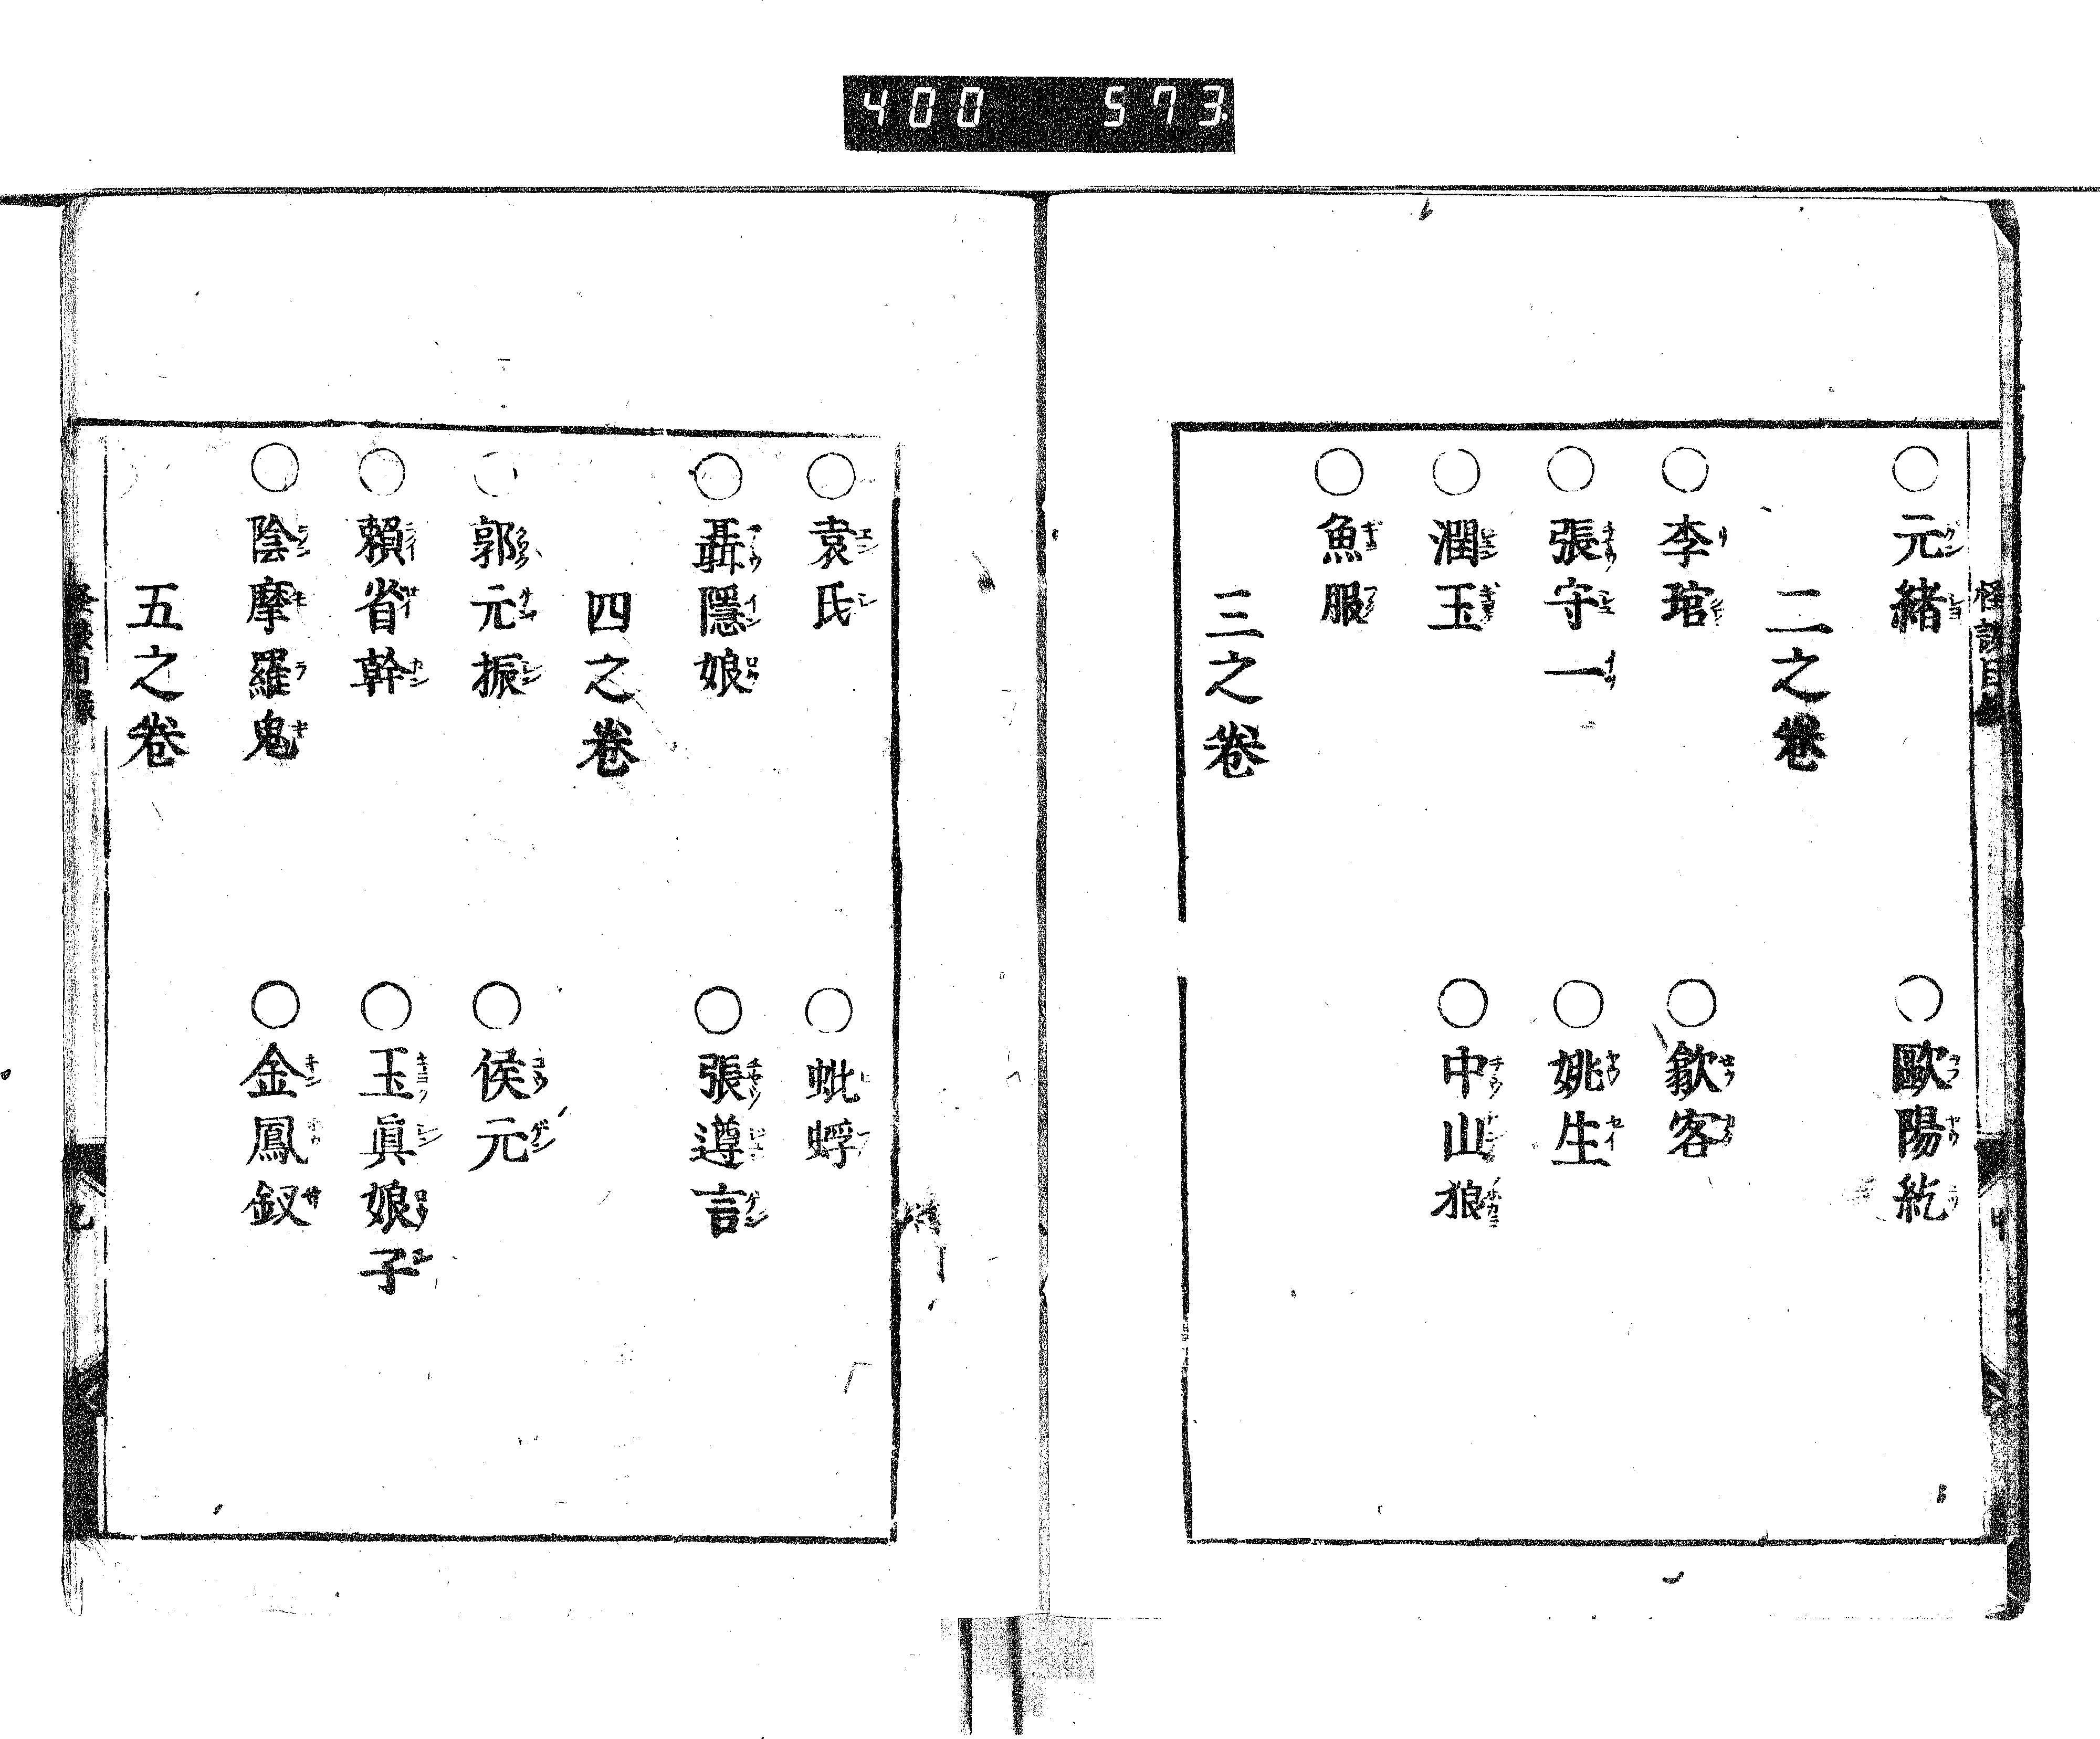 400 573
怪談目
○元緒 ○歐陽紇
二之卷
○李琯 ○歙客
○張守一 ○姚生
○潤玉 ○中山狼
○魚服
三之卷
○袁氏 ○蚍蜉
○聶隱娘 ○張遵言
四之卷
○郭元振 ○侯元
○賴省幹 ○玉眞娘子
○陰摩羅鬼 ○金鳳釵
五之卷